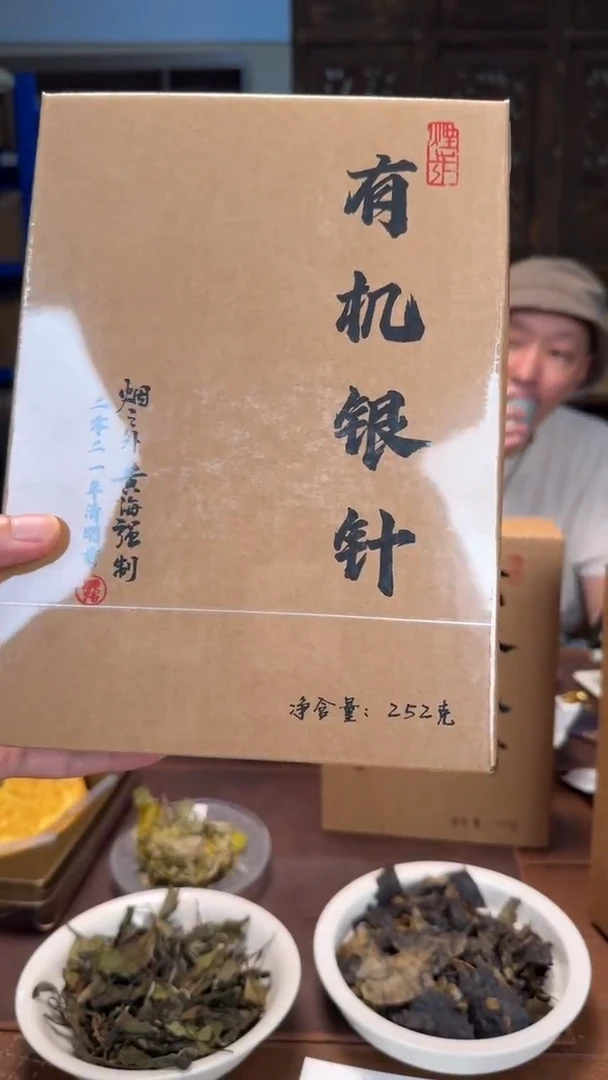 有机银针
烟之外 黄海强制
二零二一年清明前
净含量：252克